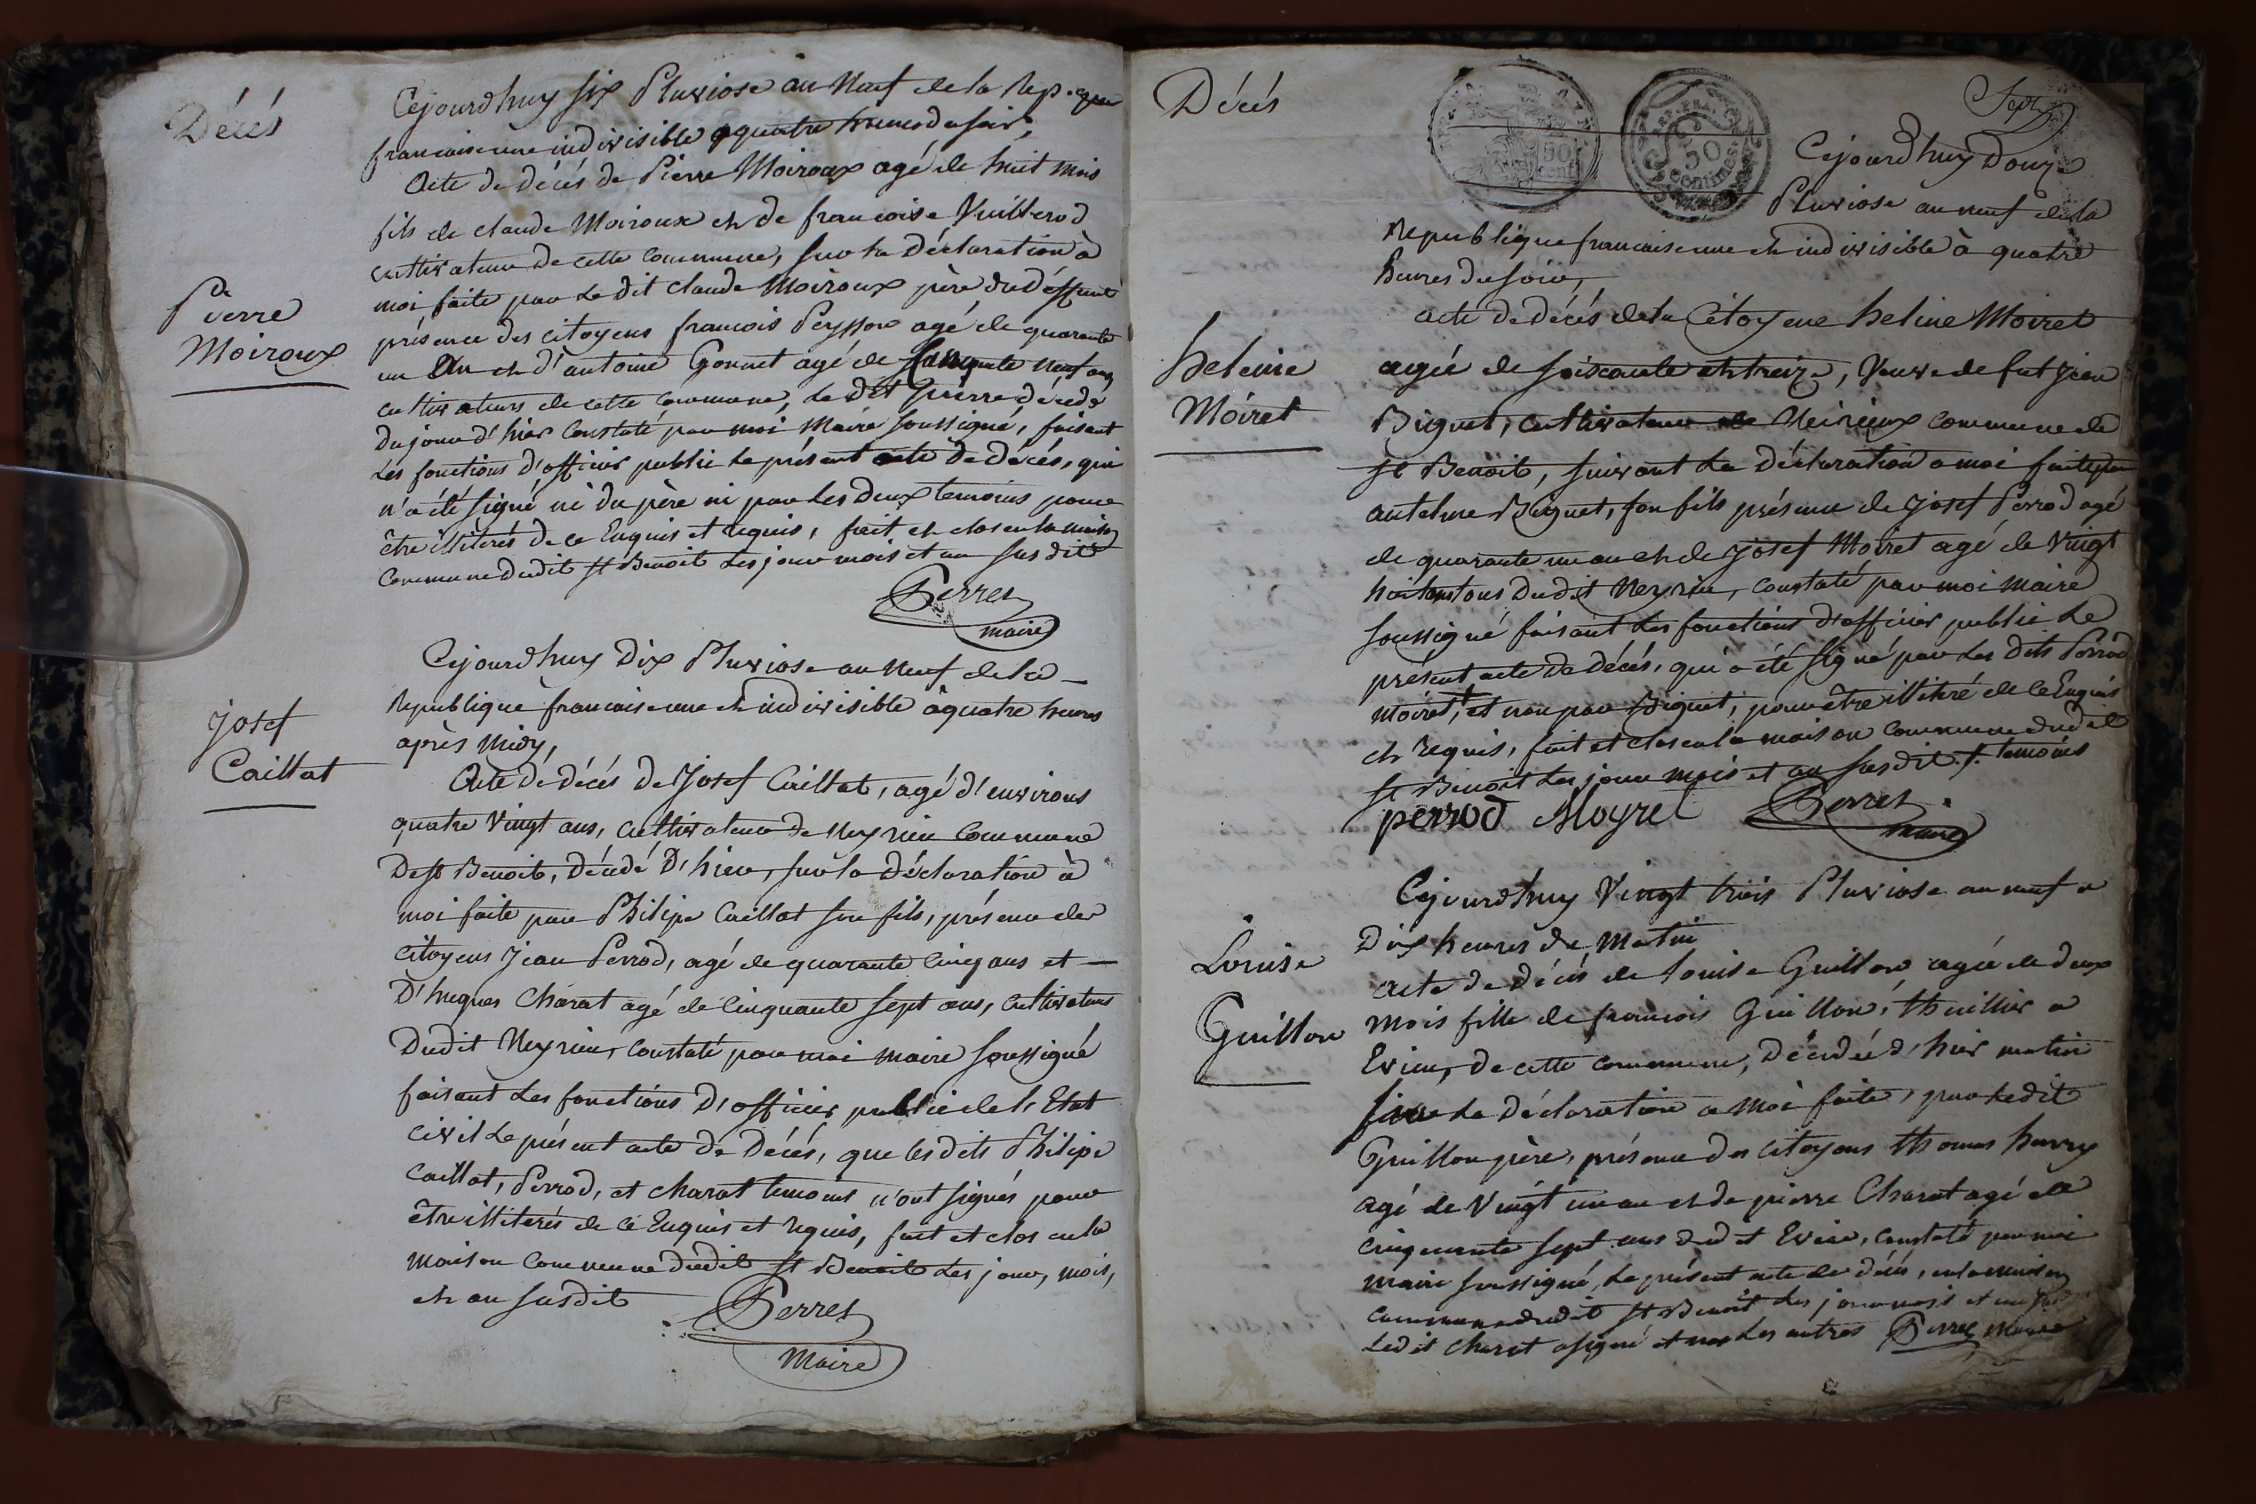 Décés
Cejourd'huy six Pluviose an Neuf de la Rep.que
francaise une indivisible a quatre heures du soir,
Acte de décés de Pierre Moiroux agé de huit mois
fils de claude Moiroux et de francoise Vuillerod
cultivateur de cette commune, sur la Déclaration à
moi faite par le dit claude Moiroux père du déffunt
présence des citoyens francois Peysson agé de quarante
un an et d'antoine Gonnet agé de cinquante neuf ans
cultivateurs de cette commune, le dit Pierre décédé
du jour d'hier Constaté par moi Maire soussigné, faisant
les fonctions d'officier public le présent acte de décés, qui
n'a été signé ni du père ni par les deux temoins pour
être illiterés de ce Enquis et requis, fait et clos en la maison
commune dudit st Benoit les jour mois et an susdit
Pierre
Moiroux
Perret
maire
Cejourd'huy Dix Pluviose an Neuf de la
Republique francaise une et indivisible à quatre heures
après Midy,
Josef
Caillat
Acte de décés de Josef Caillat, agé d'environs
quatre Vingt ans, cultivateur de Neyrieu commune
De st Benoit, Décédé D'hier, sur la Déclaration à
moi faite par Philipe Caillat son fils, présence des
citoyens Jean Perrod, agé de quarante cinq ans et
D'hugues Charat agé de Cinquante sept ans, cultivateurs
Dudit Neyrieu, constaté par moi maire soussigné
faisant les fonctions D'officier public de l'Etat
civil le présent acte de Décés, que lesdits Philipe
Caillat, Perrod, et charat temoins n'ont signés pour
être illiterés de ce Enquis et requis, fait et clos en la
maison commune dudit st Benoit les jour, mois,
et an susdit
Perret
Maire
Décés
Sept
50
cent
REP. FRA
50
Centimes
Cejourd'huy Douze
Pluviose an neuf de la
Republique francaise une et indivisible à quatre
heures du soir,
acte de décés de la Citoyene heleine Moiret
agée de soixante et treize, Veuve de fut Jean
Biguet, cultivateur de Neirieux commune de
st Benoit, suivant la Déclaration a moi faite par
antelme Biguet, son fils présence de Josef Perrod agé
de quarante un an et de Josef Moiret agé de Vingt
huit ans tous dudit Neyrieu, constaté par moi maire
soussigné faisant les fonctions d'officier public le
présent acte de décés, qui a été signé par les dits Perrod
Moiret, + et non par Biguet, pour être illitéré de ce Enquis
et requis, fait et clos en la maison commune dudit
st Benoit les jour mois et an susdit. + temoins
heleine
Moiret
perrod Moyret Perret
maire
Cejourd'huy Vingt trois Pluviose an neuf a
Dix heures de Matin
Louise
Guillon
acte de décés de Louise Guillon agée de deux
Mois fille de francois Guillon, thuillier a
Evieu, de cette commune, décédée d'hier matin
sur la Déclaration a moi faite, par ledit
Guillon père, présence des citoyens thomas hurry
agé de Vingt un an et de pierre Charat agé de
cinquante sept ans dudit Evieu, constaté par moi
maire soussigné, le présent acte de décés, en la maison
commune dudit st Benoit les jour mois et an susdit
Ledit charat a signé et non les autres Perret maire